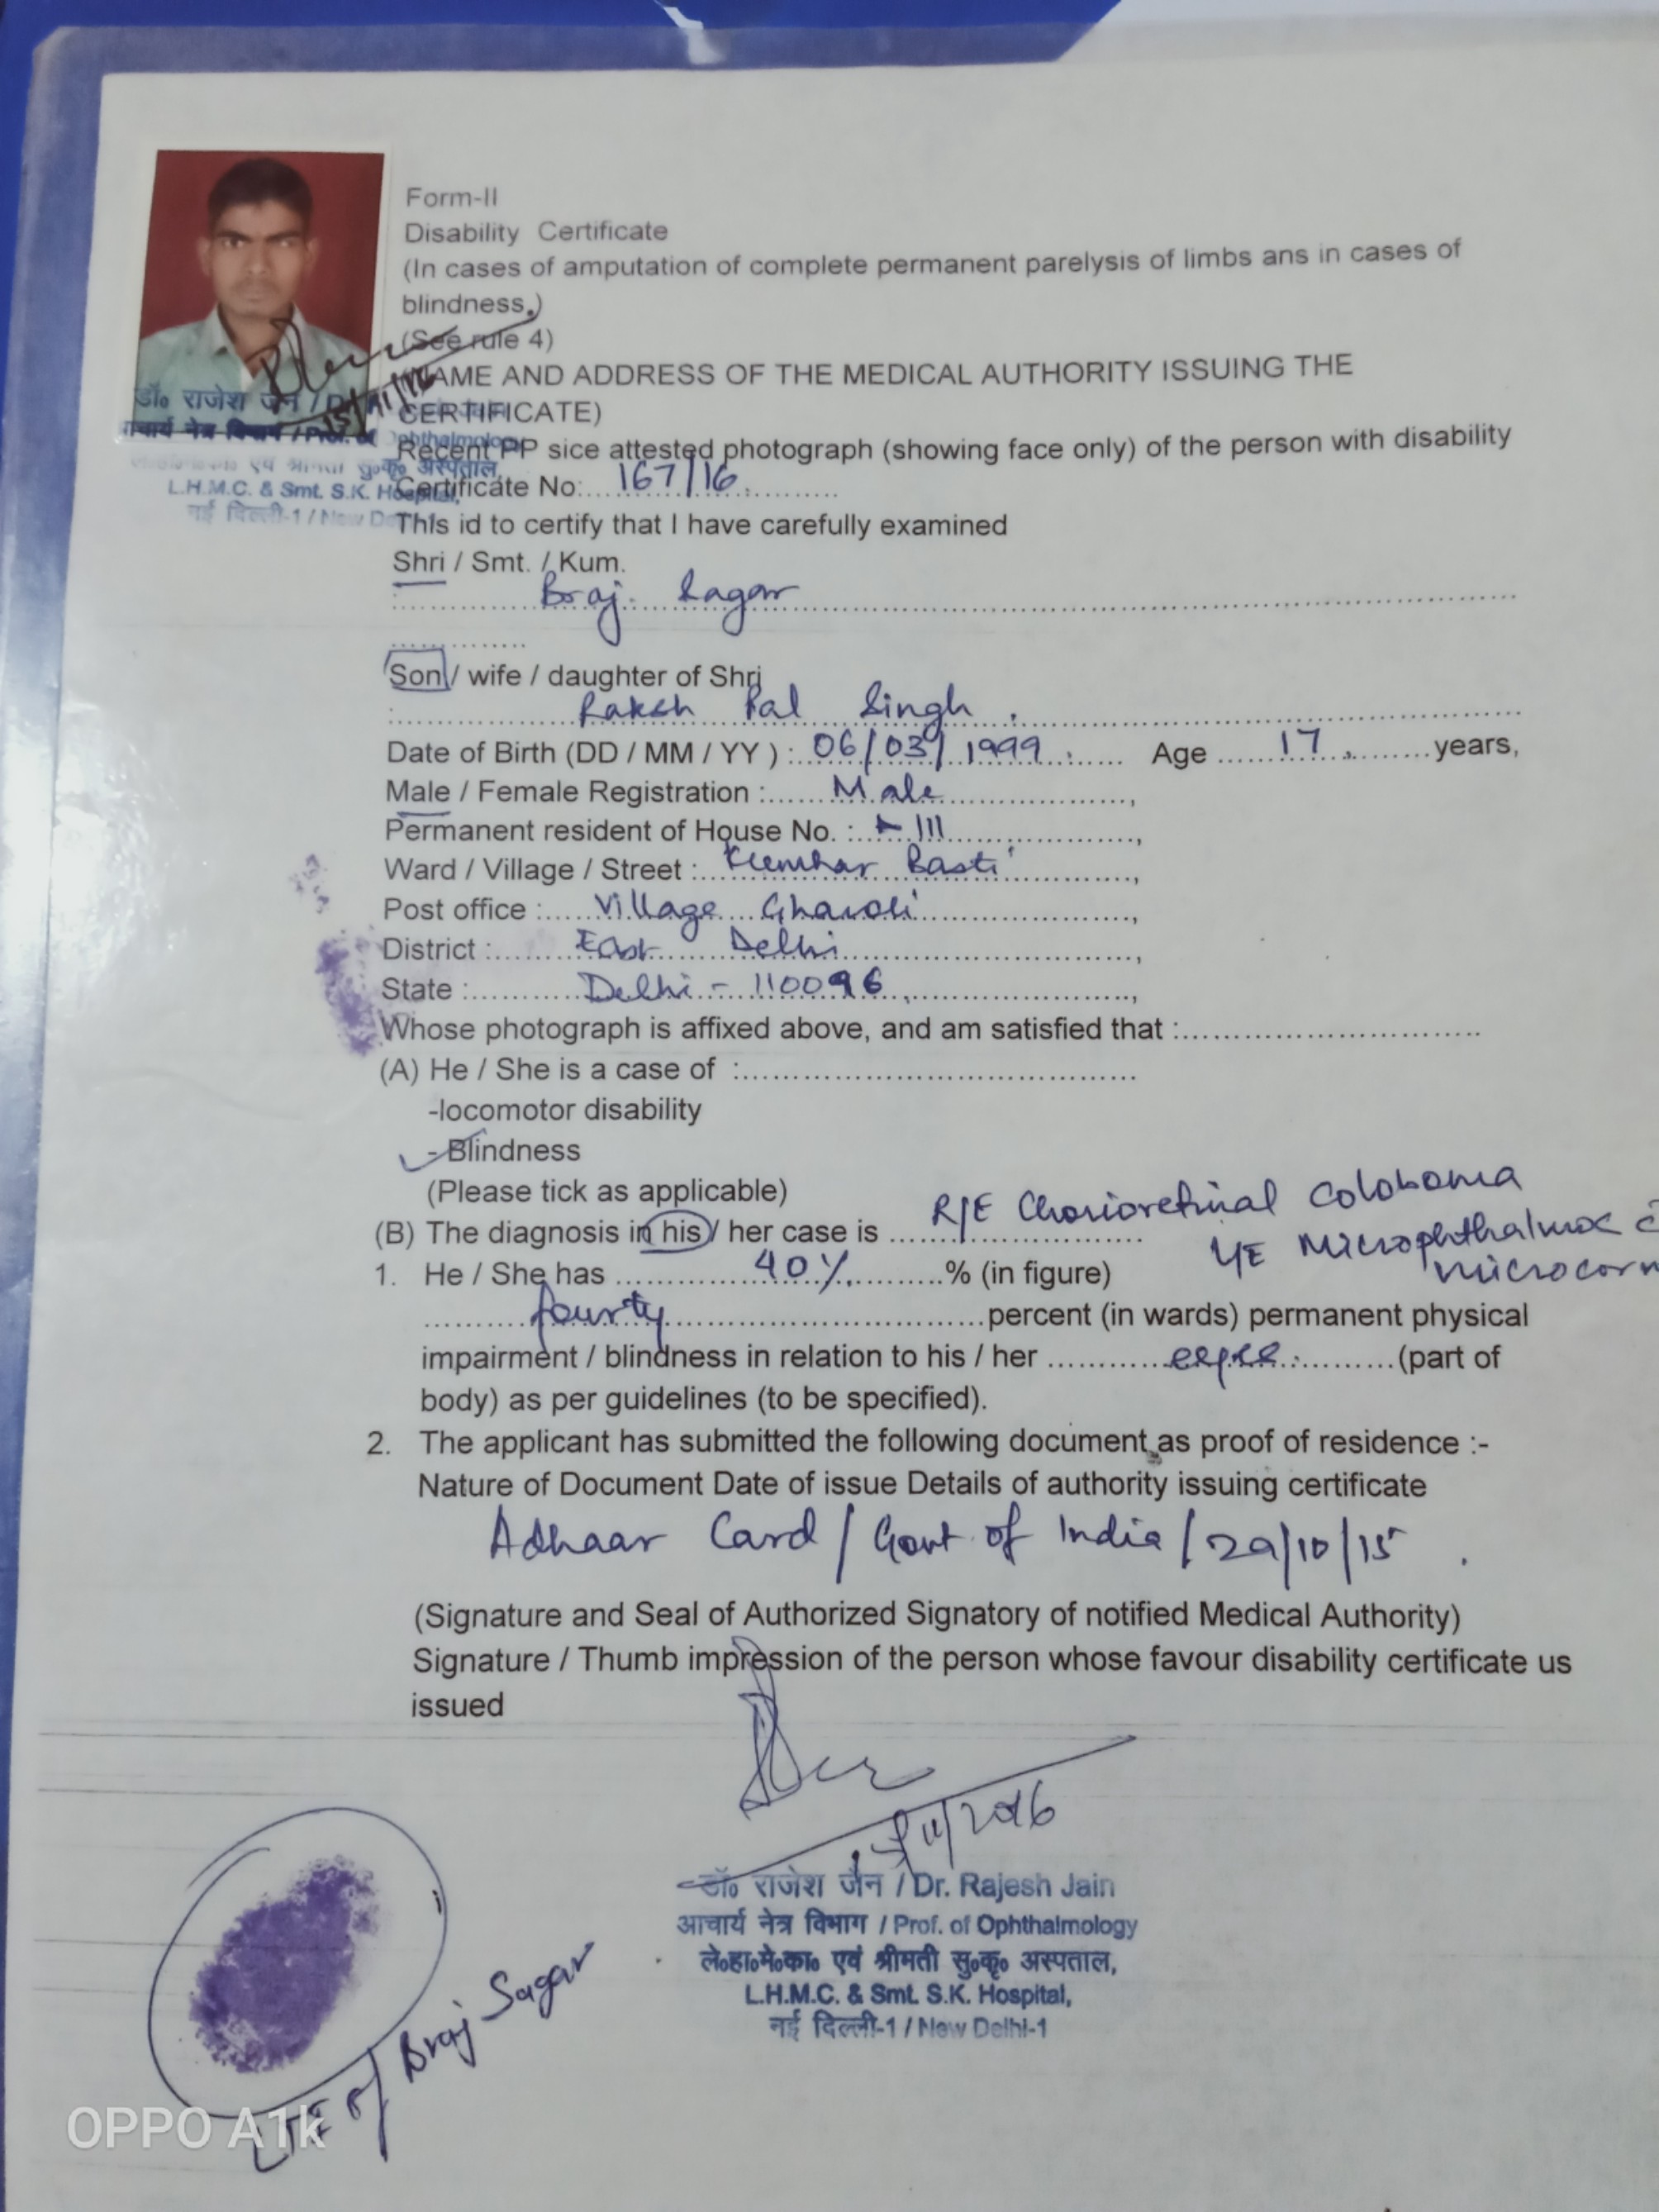 Form-II
Disability Certificate
(In cases of amputation of complete permanent parelysis of limbs ans in cases of
blindness.)
(See rule 4)
(NAME AND ADDRESS OF THE MEDICAL AUTHORITY ISSUING THE
CERTIFICATE)
Recent PP sice attested photograph (showing face only) of the person with disability
डॉ० राजेश जैन /
आचार्य नेत्र विभाग / Prof. of Ophthalmology
एवं श्रीमती सु०कृ० अस्पताल,
L.H.M.C. & Smt. S.K. Hospital,
नई दिल्ली-1 / New Delhi-1
Certificate No: 167/16.
This id to certify that I have carefully examined
Shri / Smt. / Kum.
Braj. Sagar
Son / wife / daughter of Shri
Raksh Pal Singh.
Date of Birth (DD / MM / YY ) : 06/03/1999. Age 17. years,
Male / Female Registration : Male,
Permanent resident of House No. : 111,
Ward / Village / Street : Kumhar Basti,
Post office : Village Gharoli,
District : East Delhi,
State : Delhi - 110096,
Whose photograph is affixed above, and am satisfied that :
(A) He / She is a case of :
-locomotor disability
- Blindness
(Please tick as applicable)
(B) The diagnosis in his / her case is R/E Chorioretinal Coloboma
L/E Microphthalmos
1. He / She has 40% % (in figure)
fourty percent (in wards) permanent physical
impairment / blindness in relation to his / her eyes. (part of
body) as per guidelines (to be specified).
2. The applicant has submitted the following document as proof of residence :-
Nature of Document Date of issue Details of authority issuing certificate
Adhaar Card / Govt. of India / 29/10/15.
(Signature and Seal of Authorized Signatory of notified Medical Authority)
Signature / Thumb impression of the person whose favour disability certificate us
issued
/11/2016
डॉ० राजेश जैन / Dr. Rajesh Jain
आचार्य नेत्र विभाग / Prof. of Ophthalmology
ले०हा०मे०का० एवं श्रीमती सु०कृ० अस्पताल,
L.H.M.C. & Smt. S.K. Hospital,
नई दिल्ली-1 / New Delhi-1
LTE of Braj Sagar
OPPO A1k